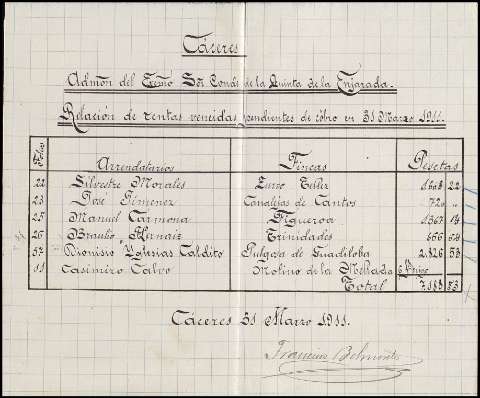 Cáceres
Admón del Excmo Sor. Conde de la Quinta de la Enjarada.
Relación de rentas vencidas pendientes de cobro en 31 Marzo 1911.
Folios Arrendatarios Fincas Pesetas
22 Silvestre Morales Zurro Tellez 22
23 Jose Gimenez Canalejas de Cantos 720 "
25 Manuel Carmona Higueroa 1367 14
26 Braulio Hernaiz Trinidades 656 64
37 Dionisio y Ysaias Caldito Pulgosa de Guadiloba 2.826 53
Casimiro Calvo Molino de la
Total 7.183 53
Cáceres 31 Marzo 1911.
Francisco Belmonte